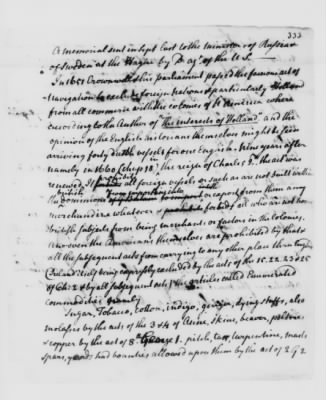 333
A memorial sent in Sept last to the ministers of Russia &
of Sweden at the Hague by D. Ag. of the U.S.
In 1651 Cromwell & his parliament passed the famous act of
Navigation to exclude foreign nations & particularly Holland
from all commerce with the colonies of N. America where
according to the Author of The interests of Holland, and the
opinion of the English historians themselves might be seen
arriving forty dutch vessels for one English. Nine years after
namely in 1660 (chap. 18) in the reign of Charles 2. the act was
renewed. It prohibits all foreign vessels or such as are not built within
the British dominions to import or export from them any
merchandize whatever & forbids all who are not born
British subjects from being merchants or factors in the colonies.
Nor even the Americans themselves are prohibited by that &
all the subsequent acts from carrying to any other place than England
(Ireland itself being expressly excluded by the acts of the 15. 22. 23 & 25
of Ch. 2. & by all subsequent acts) the articles called Enumerated
commodities namely
Sugar, Tobacco, cotton, indigo, ginger, dying stuffs, also
molasses by the acts of the 3 & 4 of Anne, skins, beaver, peltries
& copper by the act of 8th George 1. pitch, tar, turpentine, masts
spars, yards had bounties allowed upon them by the act of 2 G 2